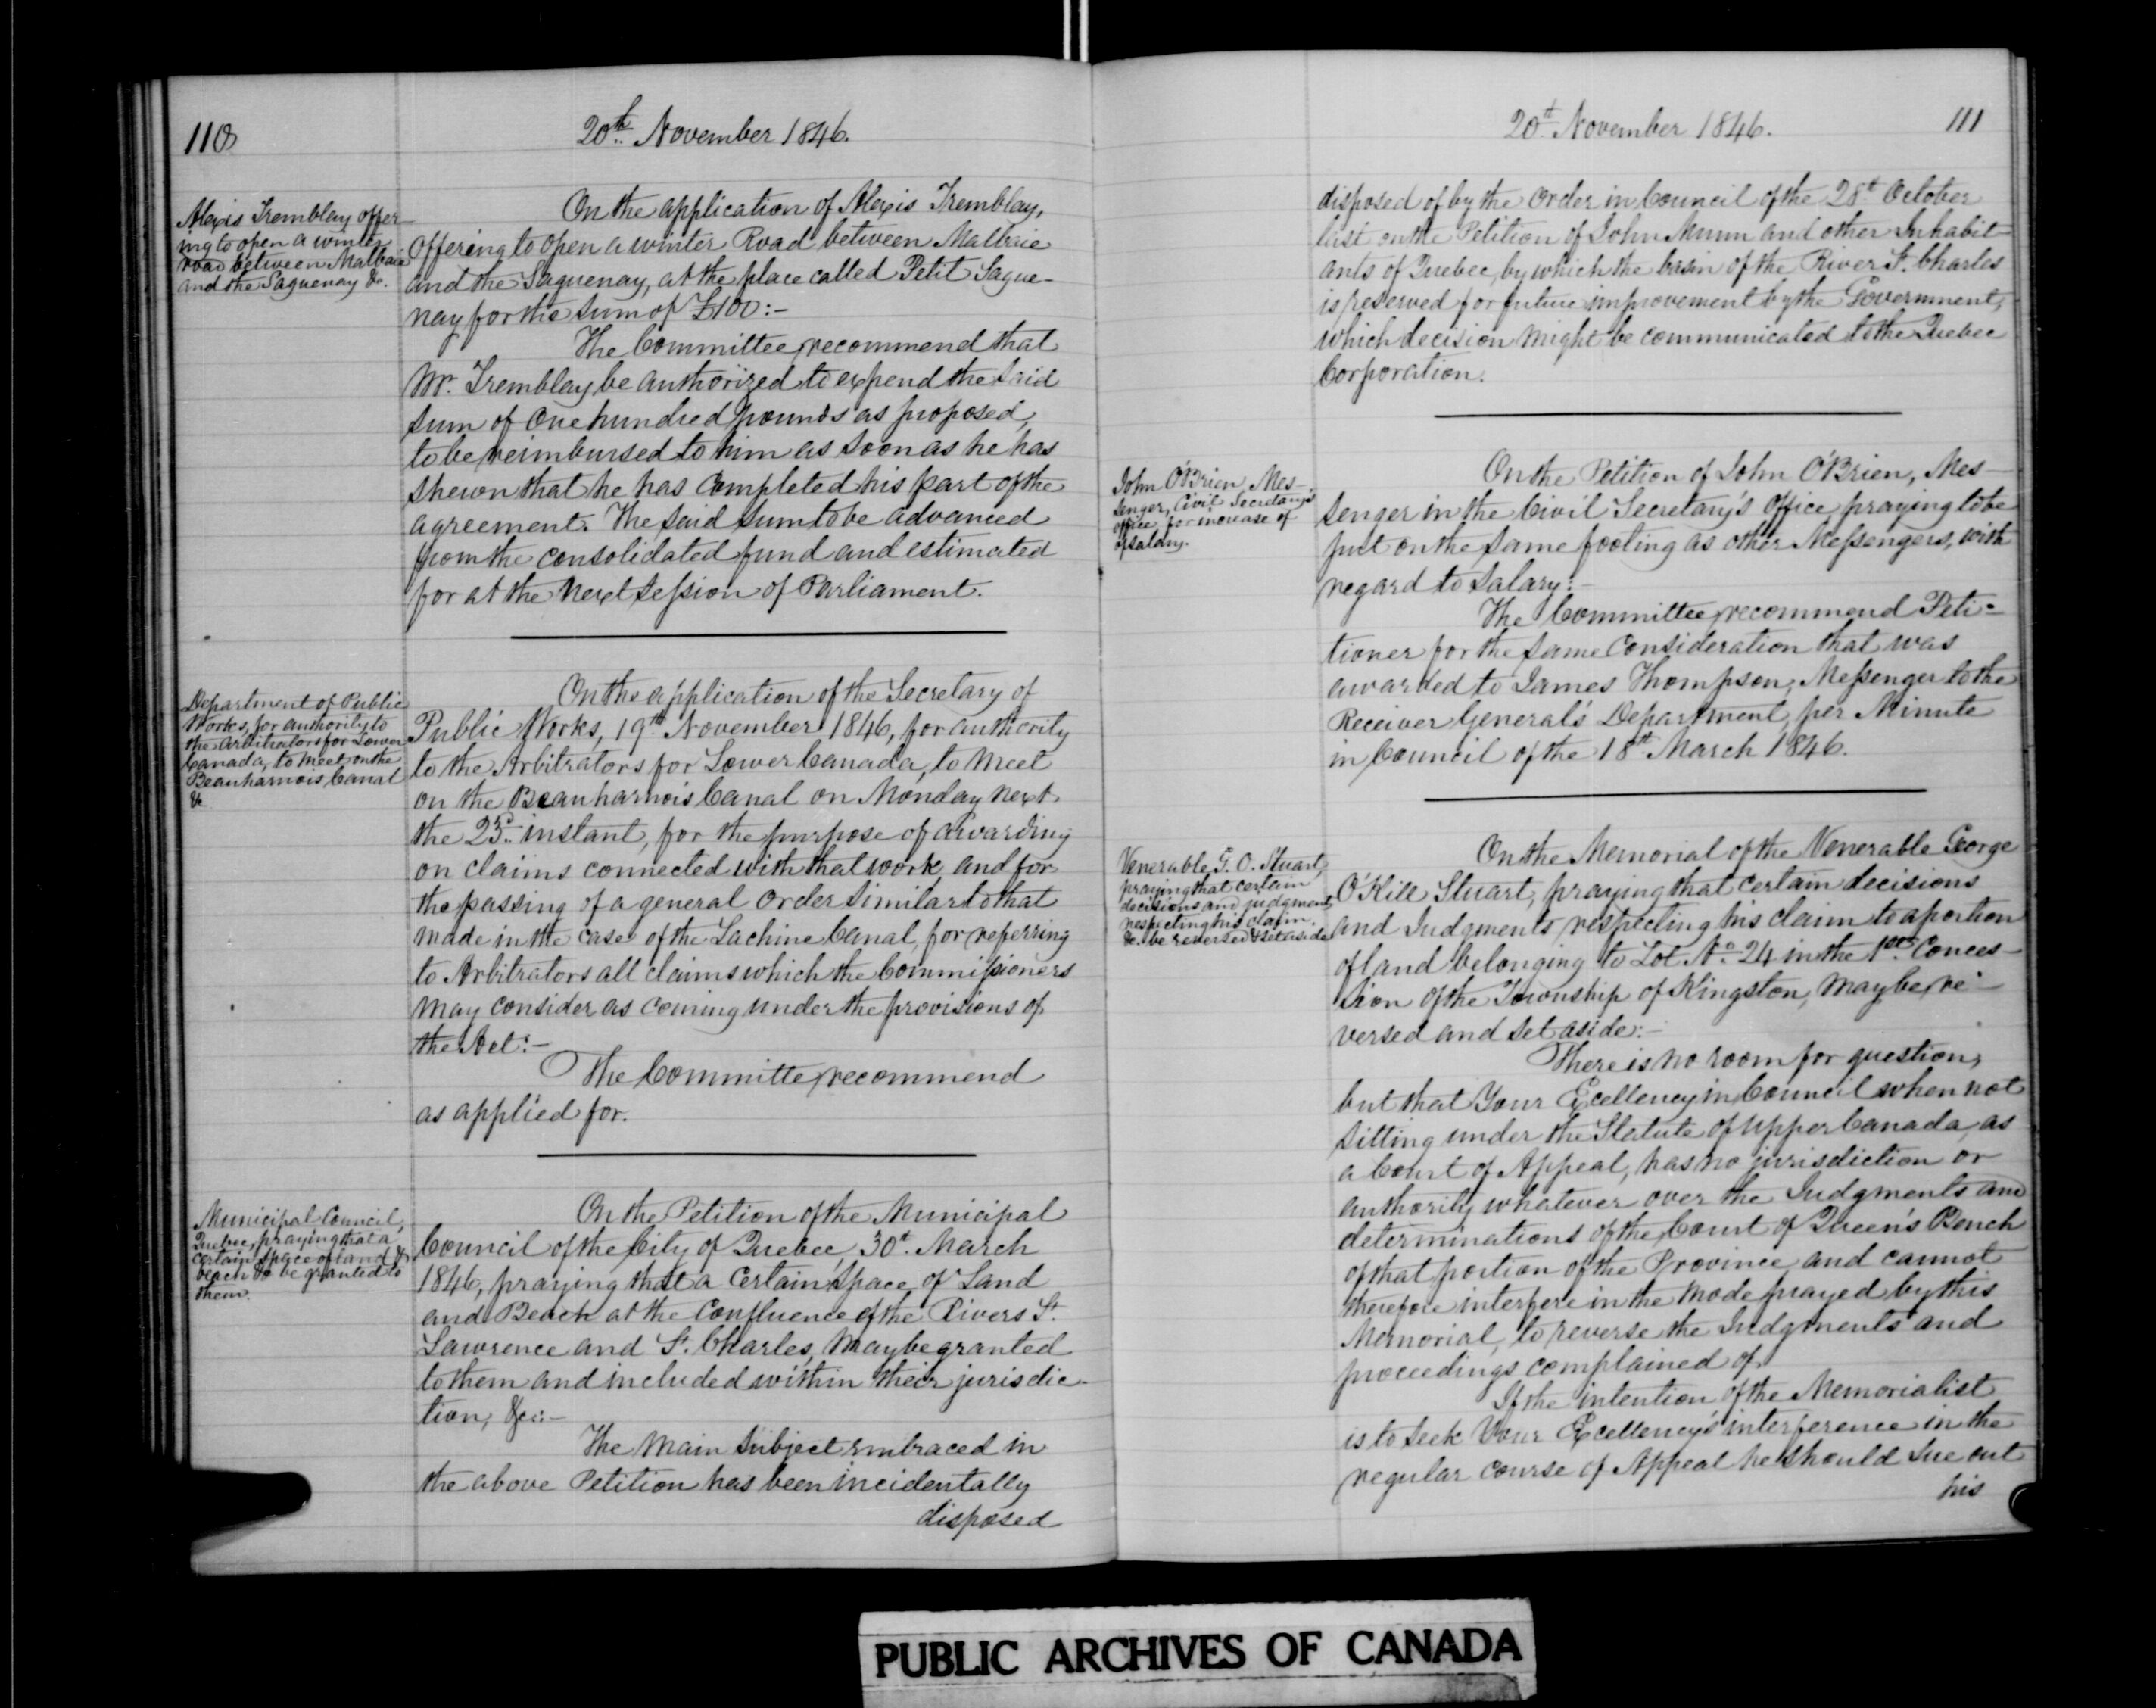 110
20th November 1846.
Alexis Tremblay offer-
ing to open a winter
road between Malbaie
and the Saguenay &c.
On the application of Alexis Tremblay,
Offering to open a winter Road between Malbaie
and the Saguenay, at the place called Petit Sague-
nay for the sum of £100:-
The Committee recommend that
Mr. Tremblay be authorized to expend the said
sum of One hundred pounds as proposed,
to be reimbursed to him as soon as he has
shewn that he has Completed his part of the
agreement. The said sum to be advanced
from the consolidated fund and estimated
for at the next Session of Parliament.
Department of Public
Works, for authority to
the Arbitrators for Lower
Canada, to meet on the
Beauharnois Canal
&c
On the application of the Secretary of
Public Works, 19th November 1846, for authority
to the Arbitrators for Lower Canada, to meet
on the Beauharnois Canal on Monday next
the 23d instant, for the purpose of awarding
on claims connected with that work and for
the passing of a general Order similar to that
made in the case of the Lachine Canal, for referring
to Arbitrators all claims which the Commissioners
may consider as coming under the provisions of
the Act:-
The Committe recommend
as applied for.
Municipal Council,
Quebec, praying that a
certain space of land &
beach &c be granted to
them.
On the Petition of the Municipal
Council of the City of Quebec, 30th March
1846, praying that a Certain Space of Land
and Beach at the Confluence of the Rivers St.
Lawrence and St. Charles, may be granted
to them and included within their jurisdic-
tion, &c:-
The Main Subject embraced in
the above Petition has been incidentally
disposed
20th November 1846.
111
disposed of by the Order in Council of the 28th October
last on the Petition of John Munn and other Inhabit-
ants of Quebec, by which the basin of the River St. Charles
is reserved for future improvement by the Government,
which decision might be communicated to the Quebec
Corporation.
John O'Brien, Mes-
senger, Civil Secretary's
office, for increase of
of salary.
On the Petition of John O'Brien, Mes-
senger in the Civil Secretary's Office praying to be
put on the same footing as other Messengers, with
regard to salary:-
The Committee recommend Peti-
tioner for the same Consideration that was
awarded to James Thompson, Messenger to the
Receiver General's Department, per Minute
in Council of the 18th March 1846.
Venerable G. O. Stuart,
praying that certain
decisions and judgments
respecting his claim.
&c. be reversed & set aside
On the Memorial of the Venerable George
O'Kill Stuart, praying that certain decisions
and Judgments respecting his claim to a portion
of land belonging to Lot No. 24 in the 1st Conces-
sion of the Township of Kingston, may be re-
versed and set aside:-
There is no room for question,
but that Your Excellency in Council when not
sitting under the Statute of Upper Canada, as
a Court of Appeal, has no jurisdiction or
authority whatever over the Judgments and
determinations of the Court of Queen's Bench
of that portion of the Province, and cannot
therefore interfere in the mode prayed by this
Memorial, to reverse the Judgments and
proceedings complained of.
If the intention of the Memorialist
is to seek Your Excellency's interference in the
regular course of Appeal he should sue out
his
PUBLIC ARCHIVES OF CANADA